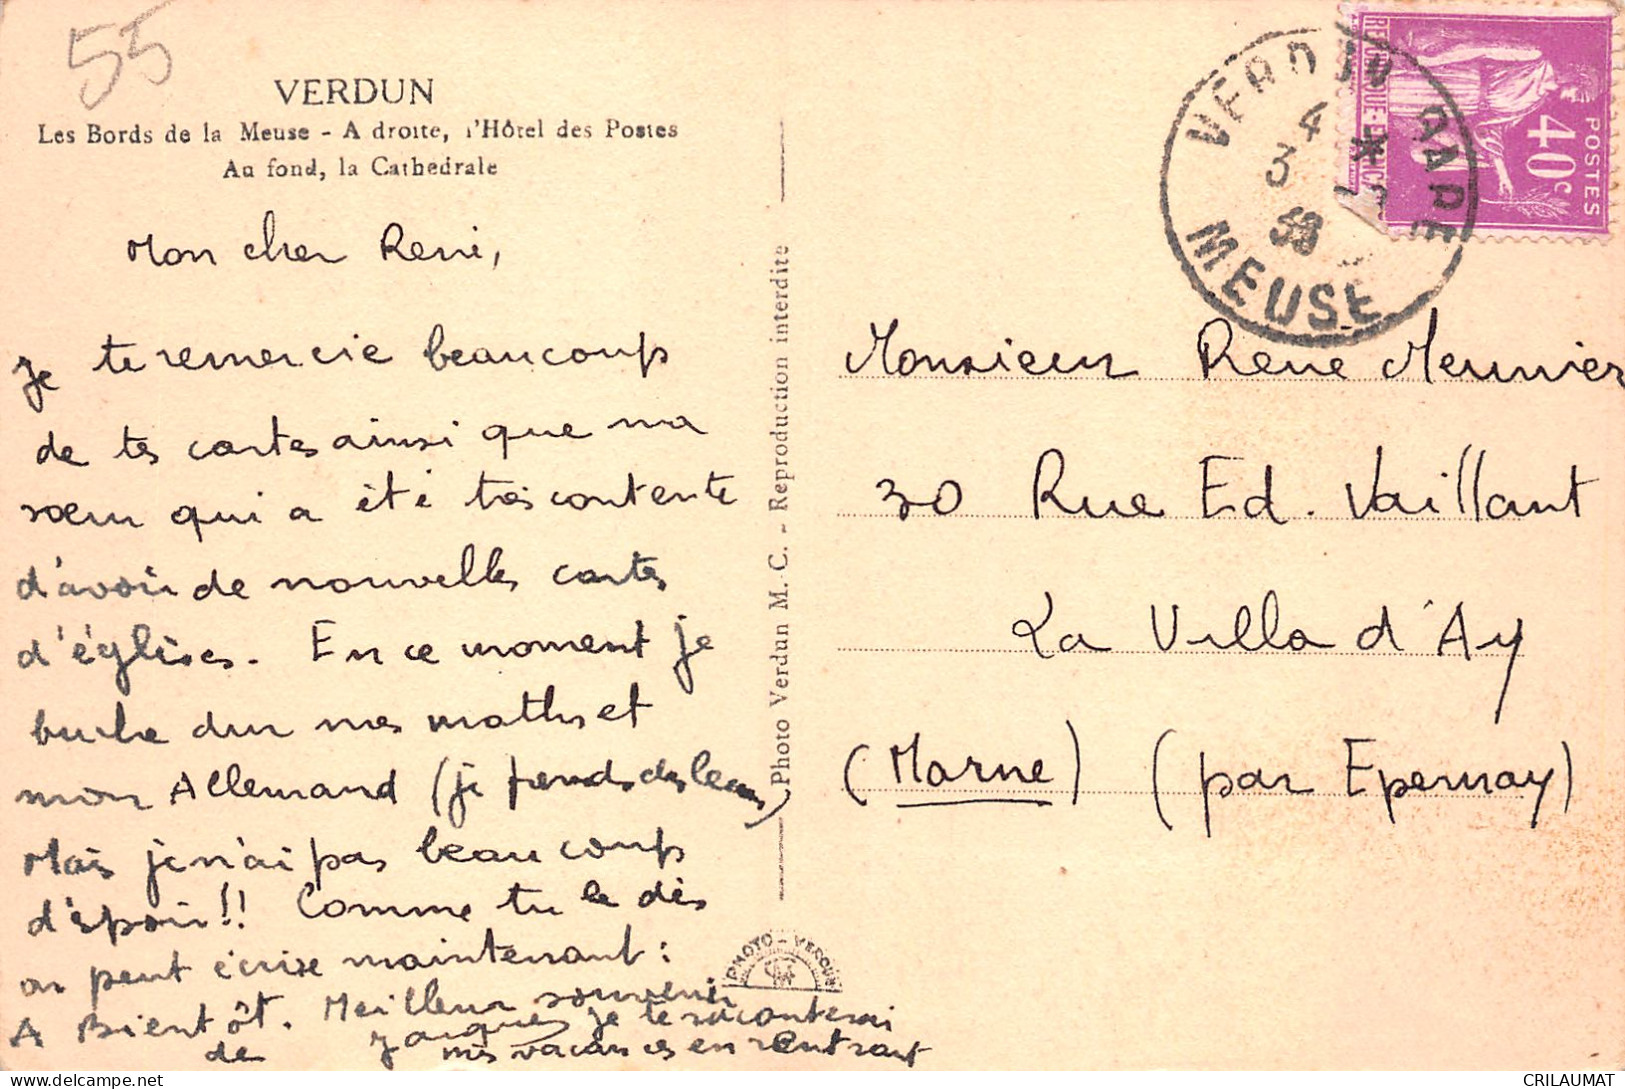 55
VERDUN
Les Bords de la Meuse - A droite, l'Hôtel des Postes
Au fond, la Cathedrale
Mon cher René,
Je te remercie beaucoup
de tes cartes ainsi que ma
sœur qui a été très contente
d'avoir de nouvelles cartes
d'églises. En ce moment je
buche dur mes maths et
mon Allemand (je perds
Mais je n'ai pas beaucoup
d'espoir!! Comme tu le dis
on peut écrire maintenant :
A Bientôt. Meilleur souvenir
de Jacques je te raconterai
mes vacances en rentrant
Photo Verdun M. C. - Reproduction interdite
PHOTO - VERDUN
VERDUN GARE
4 *
3
38
MEUSE
REPUBLIQUE FRANCAISE
POSTES
40c
Monsieur René Meunier
30 Rue Ed. Vaillant
La Villa d'Ay
(Marne) (par Epernay)
CRILAUMAT